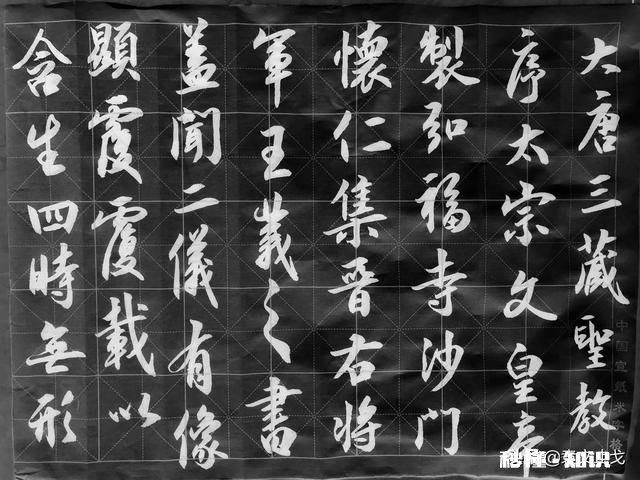 大唐三藏聖教
序太宗文皇帝
製弘福寺沙門
懷仁集晉右將
軍王羲之書
盖聞二儀有像
顯覆覆載以
含生四時無形
中国宣纸米字格